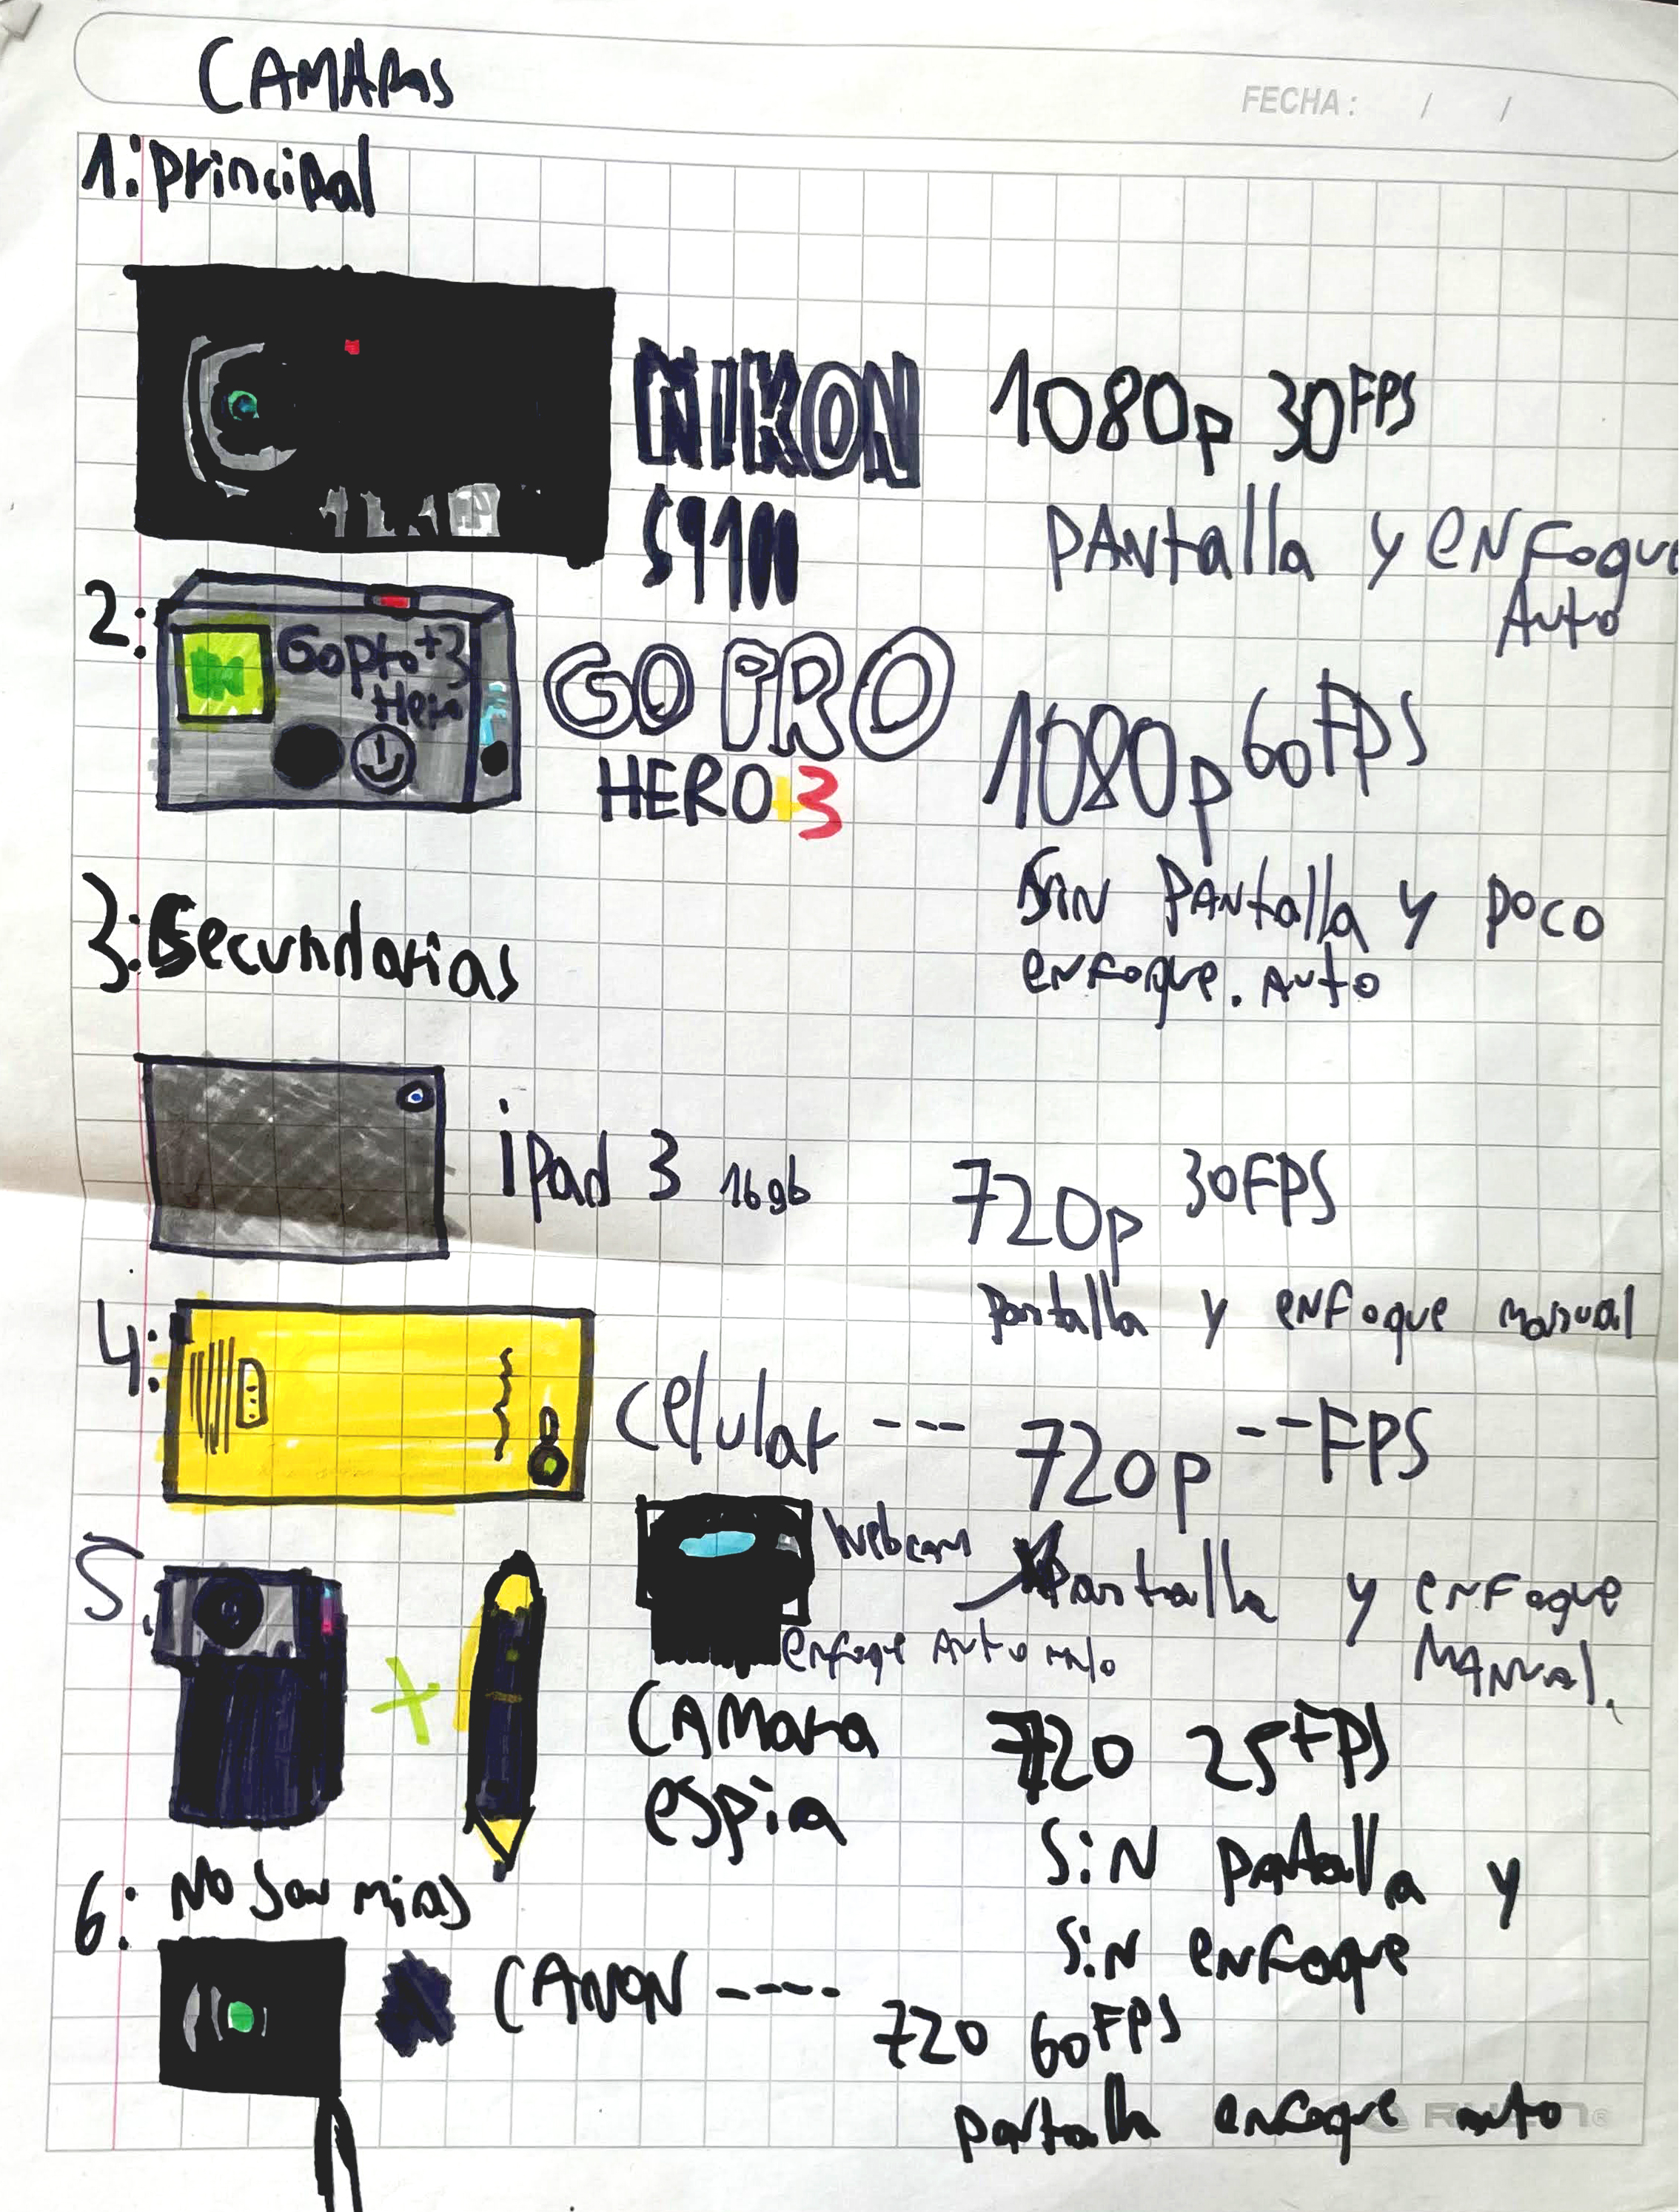 CAMARAS
FECHA: / /
1: principal
NIKON 1080p 30FPS
S9100
PANtalla y eNfoque
Auto
2:
GoPro+3
Hero
GO PRO
HERO+3
1080p 60FPS
SiN PANtalla y poco
eNfoque. Auto
3: Secundarias
iPad 3 16gb 720p 30FPS
Pantalla y eNfoque manual
4:
Celular --- 720p --FPS
Webcam
Pantalla y eNfoque
MANual.
enfoque Auto malo
5.
CAMara
espia
720 25FPS
SiN pantalla y
SiN eNfoque
6: No son mias
CANON ----
720 60FPS
pantalla enfoque auto